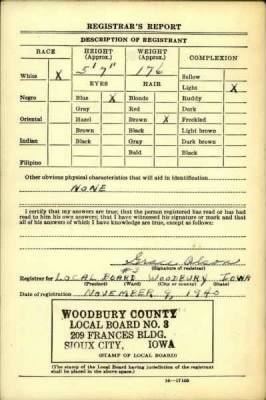 REGISTRAR'S REPORT
DESCRIPTION OF REGISTRANT
RACE HEIGHT (Approx.) WEIGHT (Approx.) COMPLEXION
5'7" 176 Sallow
White X EYES HAIR Light X
Negro Blue X Blonde Ruddy
Gray Red Dark
Oriental Hazel Brown X Freckled
Brown Black Light brown
Indian Black Gray Dark brown
Bald Black
Filipino
Other obvious physical characteristics that will aid in identification
NONE
I certify that my answers are true; that the person registered has read or has had
read to him his own answers; that I have witnessed his signature or mark and that
all of his answers of which I have knowledge are true, except as follows:
(Signature of registrar)
Registrar for LOCAL BOARD #3 WOODBURY IOWA
(Precinct) (Ward) (City or county) (State)
Date of registration NOVEMBER 9, 1940
WOODBURY COUNTY
LOCAL BOARD NO. 3
209 FRANCES BLDG.
SIOUX CITY, IOWA
(STAMP OF LOCAL BOARD)
(The stamp of the Local Board having jurisdiction of the registrant
shall be placed in the above space.)